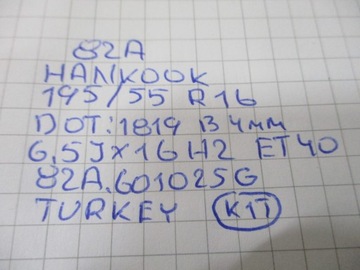 82A
HANKOOK
195/55 R16
DOT:1819 B 4mm
6,5JX16H2 ET40
82A.601025G
TURKEY K1T